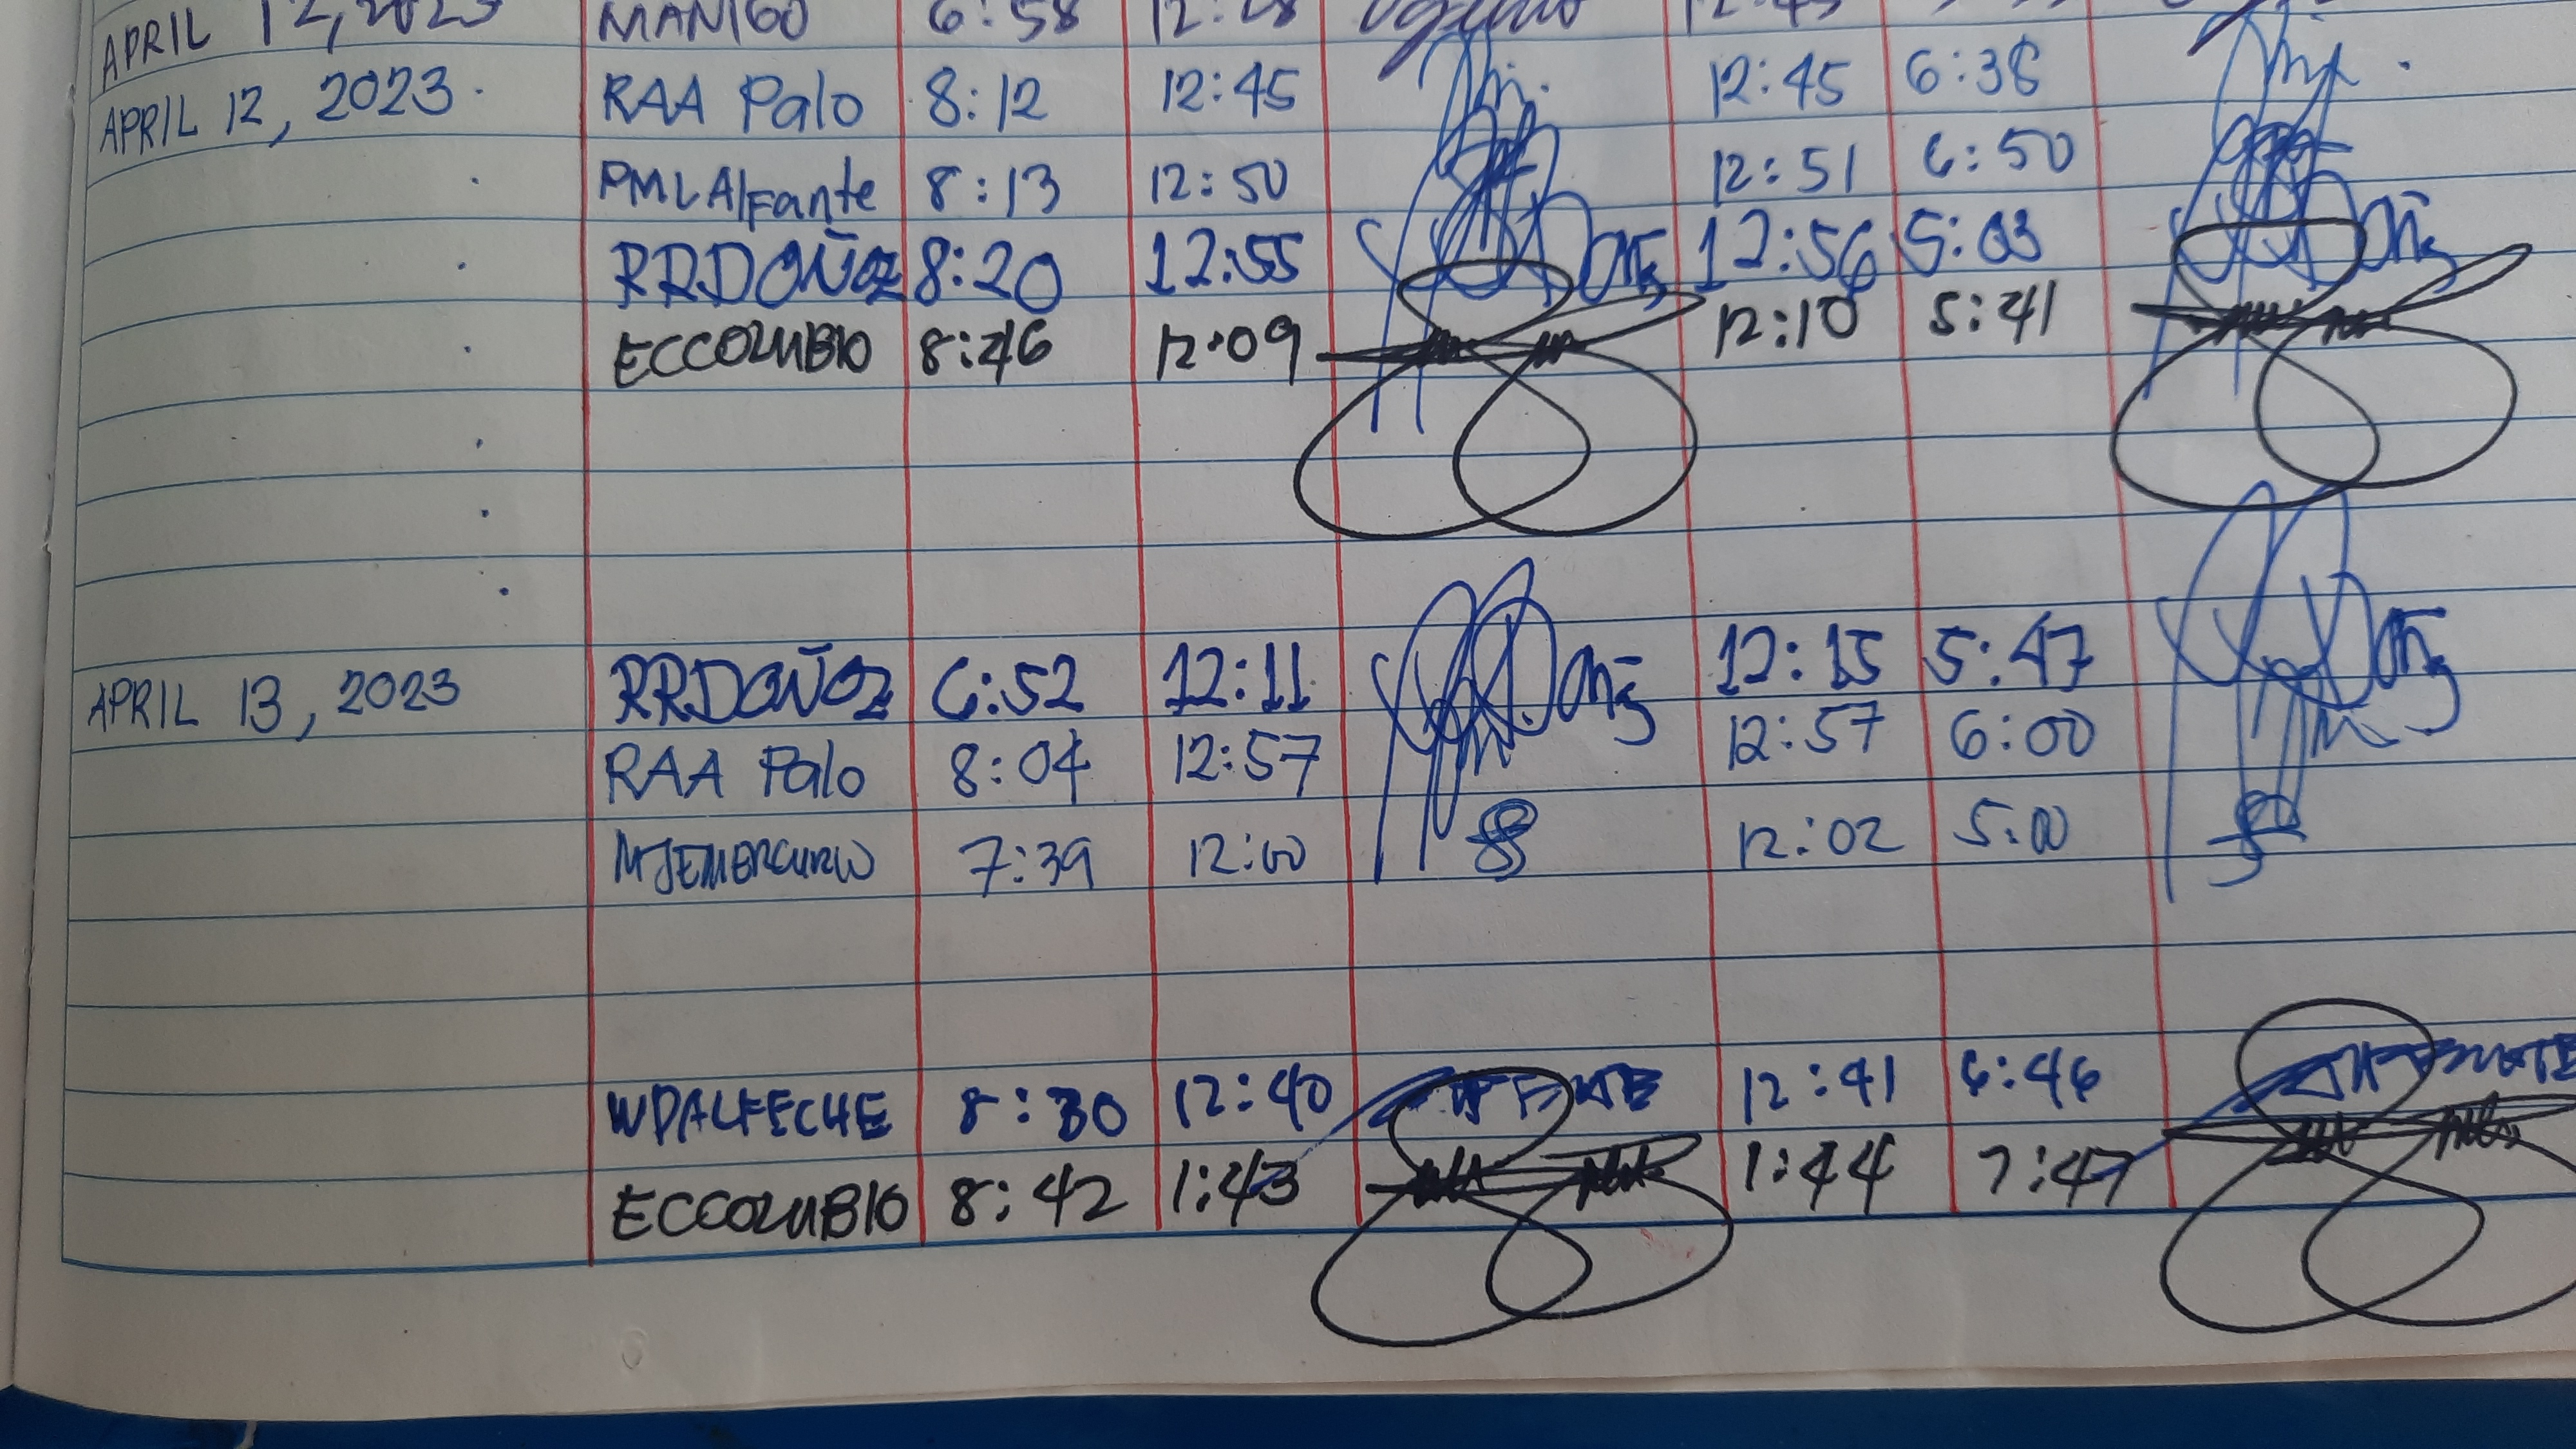 APRIL 12, 2023 MANIGO 6:58 12:28 12:45
APRIL 12, 2023. RAA Palo 8:12 12:45 12:45 6:38
PMLAlfante 8:13 12:50 12:51 6:50
RRDOÑOZ 8:20 12:55 12:56 5:03
ECCOLUMBIO 8:46 12:09 12:10 5:41
APRIL 13, 2023 RRDOÑOZ 6:52 12:11 12:15 5:47
RAA Palo 8:04 12:57 12:57 6:00
MJEMERCURIO 7:39 12:00 12:02 5:00
WDALFECHE 8:30 12:40 12:41 6:46
ECCOLUMBIO 8:42 1:43 1:44 7:47